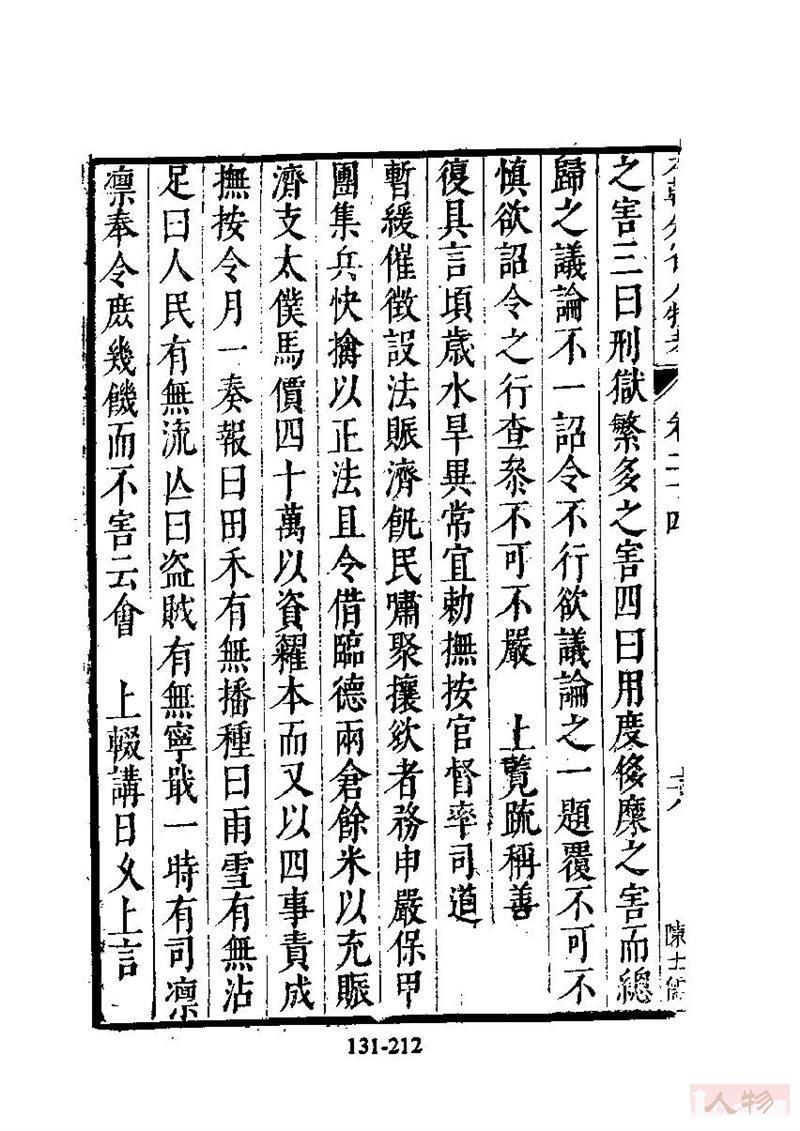 本朝分省人物考 卷二十四
之害三曰刑獄繁多之害四曰用度侈糜之害而總
歸之議論不一詔令不行欲議論之一題覆不可不
慎欲詔令之行查叅不可不嚴 上覽疏稱善
復具言頃歲水旱異常宜勅撫按官督率司道
暫緩催徵設法賑濟飢民嘯聚攘欲者務申嚴保甲
團集兵快擒以正法且令借臨德兩倉餘米以充賑
濟支太僕馬價四十萬以資糴本而又以四事責成
撫按令月一奏報曰田禾有無播種曰雨雪有無沾
足曰人民有無流亾曰盜賊有無寧戢一時有司凛
凛奉令庶幾饑而不害云會 上輟講日久上言
131-212
人物